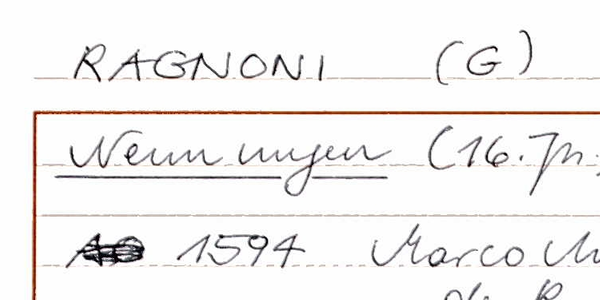 RAGNONI (G)
Nennungen (16. Jh.
1594 Marco